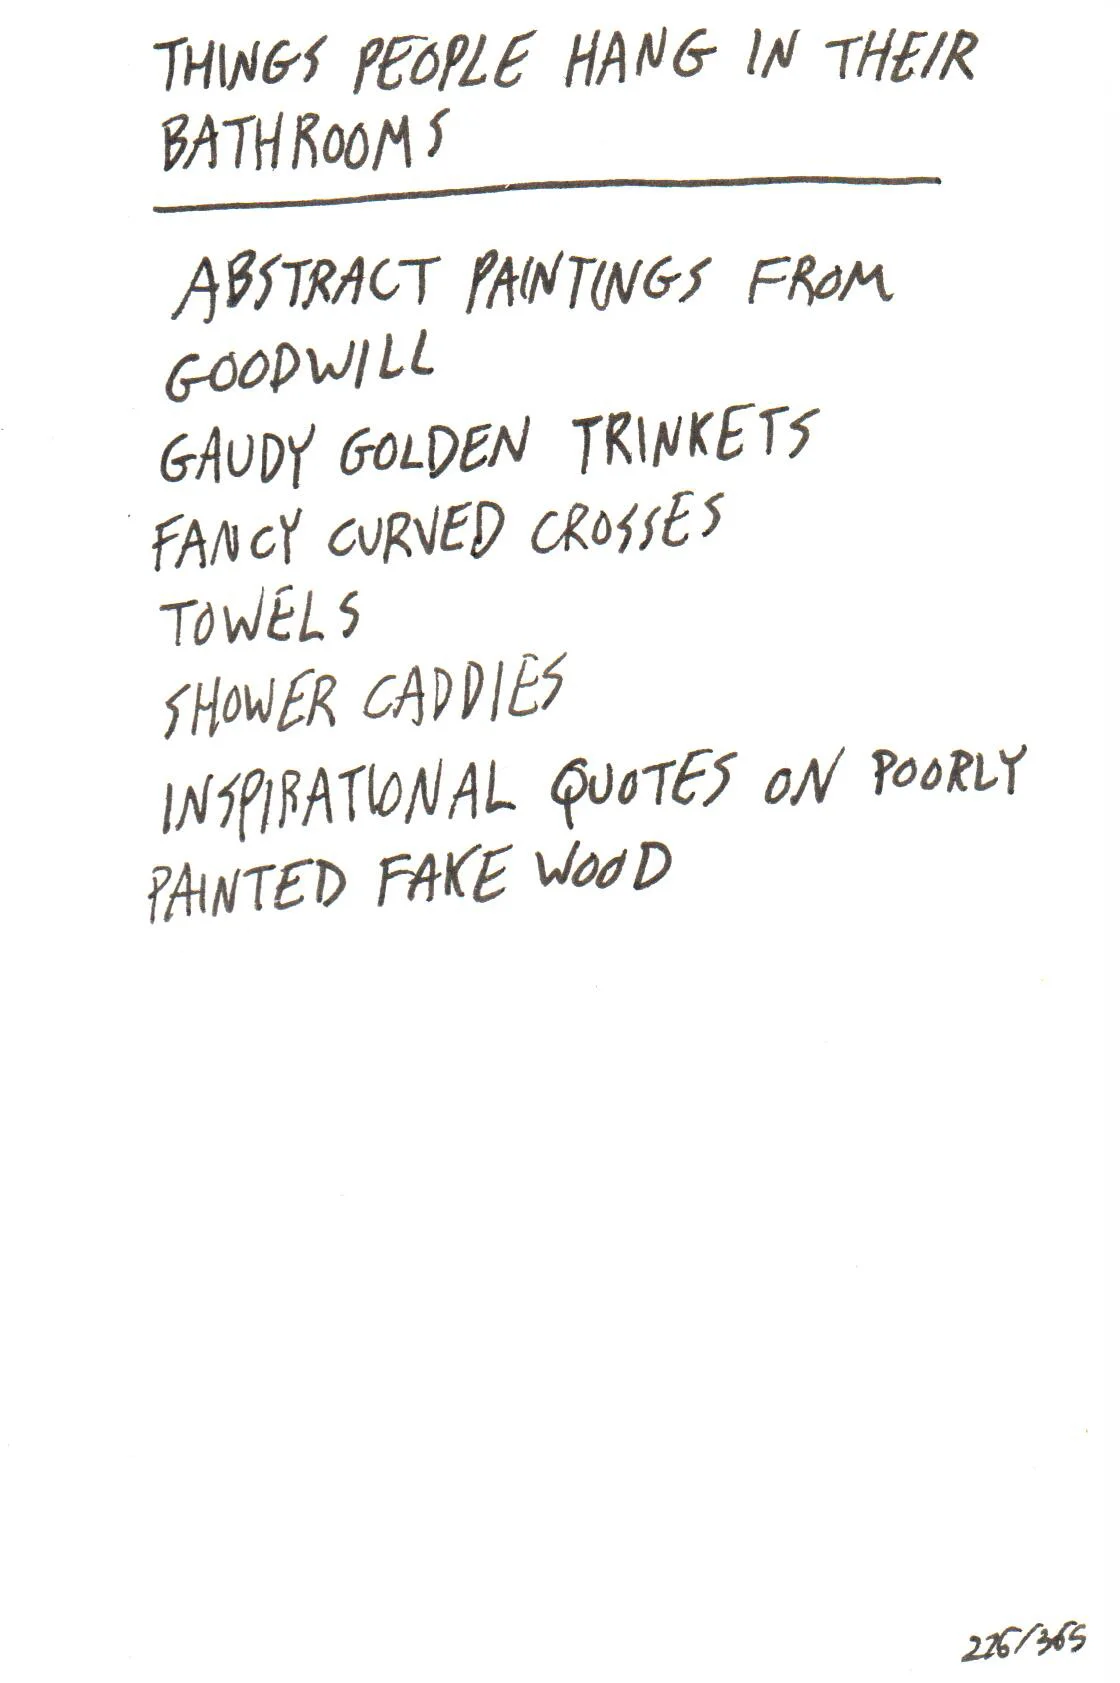 THINGS PEOPLE HANG IN THEIR
BATHROOMS
ABSTRACT PAINTINGS FROM
GOODWILL
GAUDY GOLDEN TRINKETS
FANCY CURVED CROSSES
TOWELS
SHOWER CADDIES
INSPIRATIONAL QUOTES ON POORLY
PAINTED FAKE WOOD
226/365